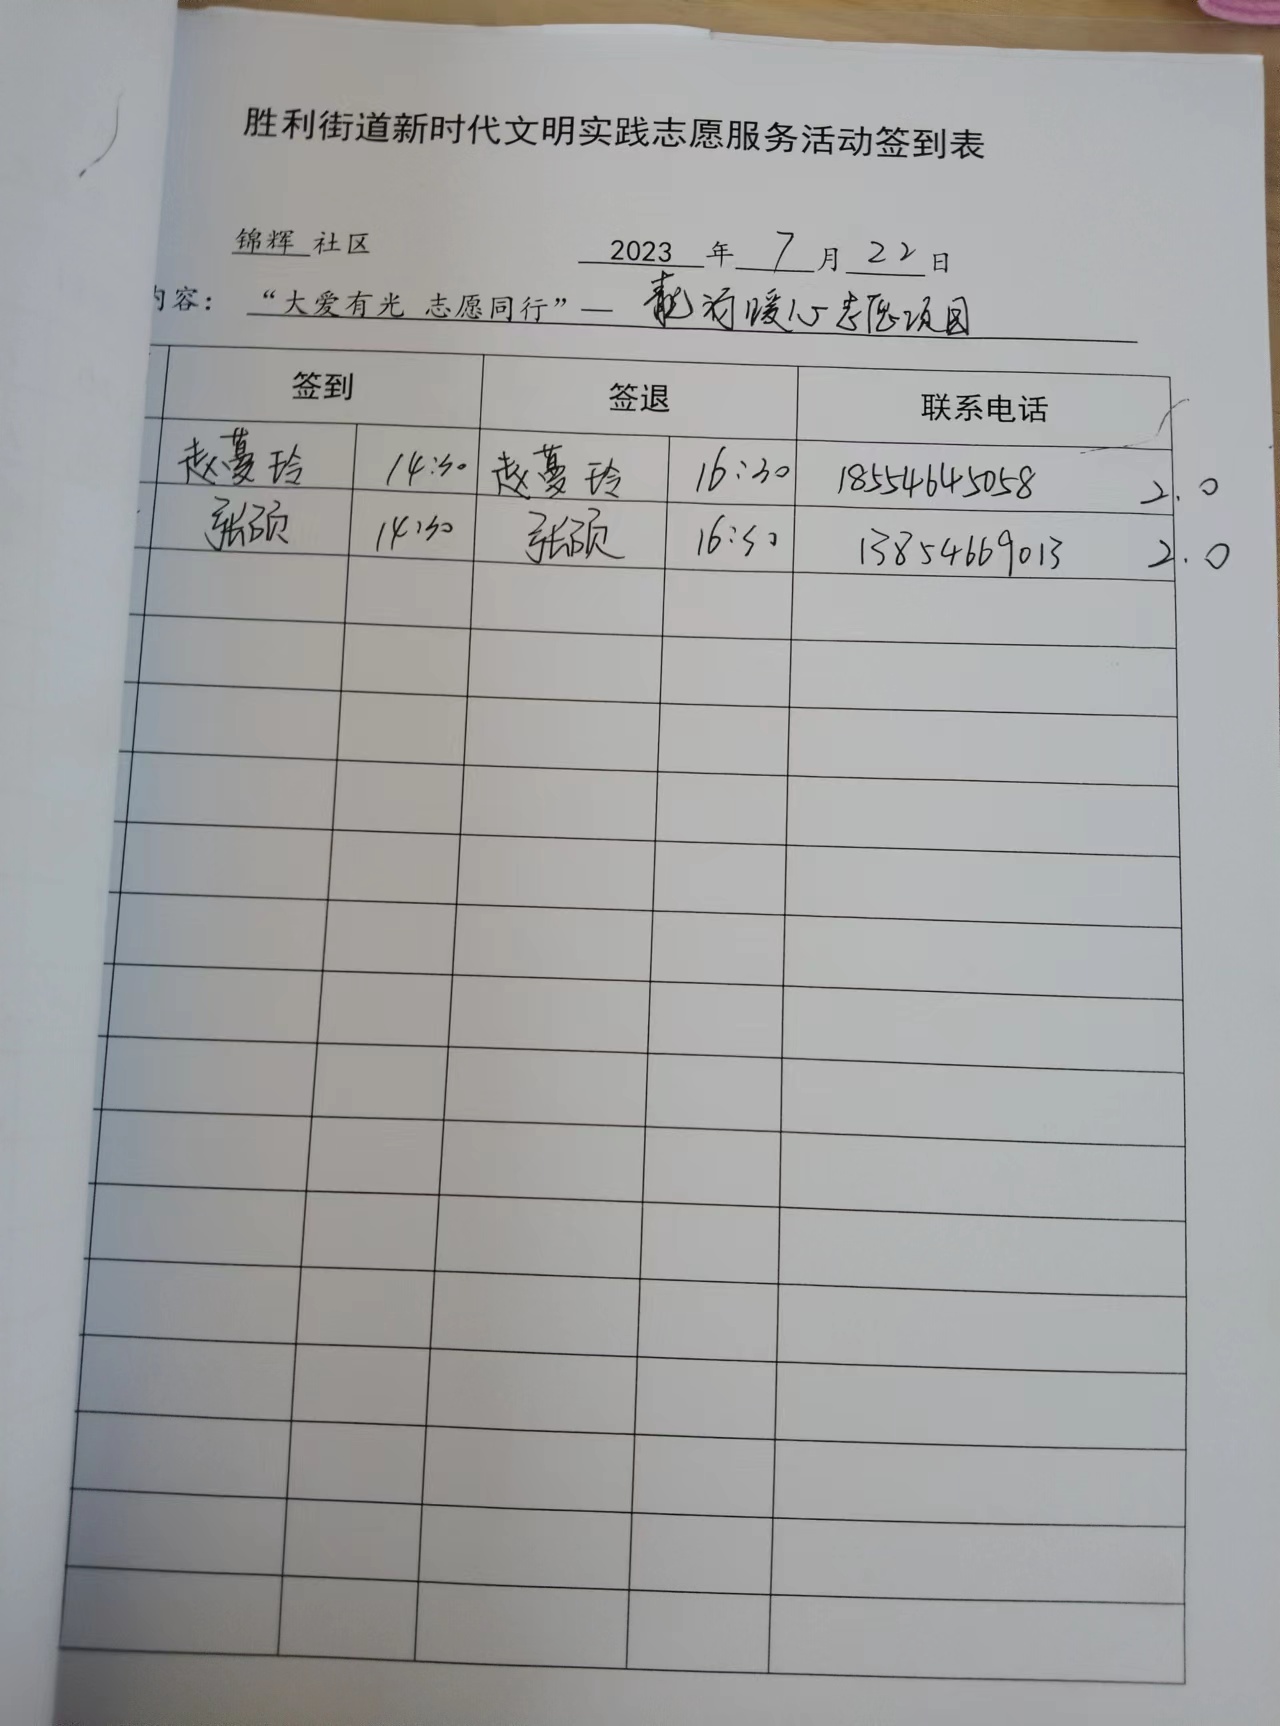 胜利街道新时代文明实践志愿服务活动签到表
锦辉 社区 2023 年 7 月 22 日
内容： “大爱有光 志愿同行”— 暖心志愿项目
签到 签退 联系电话
赵蔓玲 14:30 赵蔓玲 16:30 18554645058 2.0
张硕 14:30 张硕 16:30 13854669013 2.0